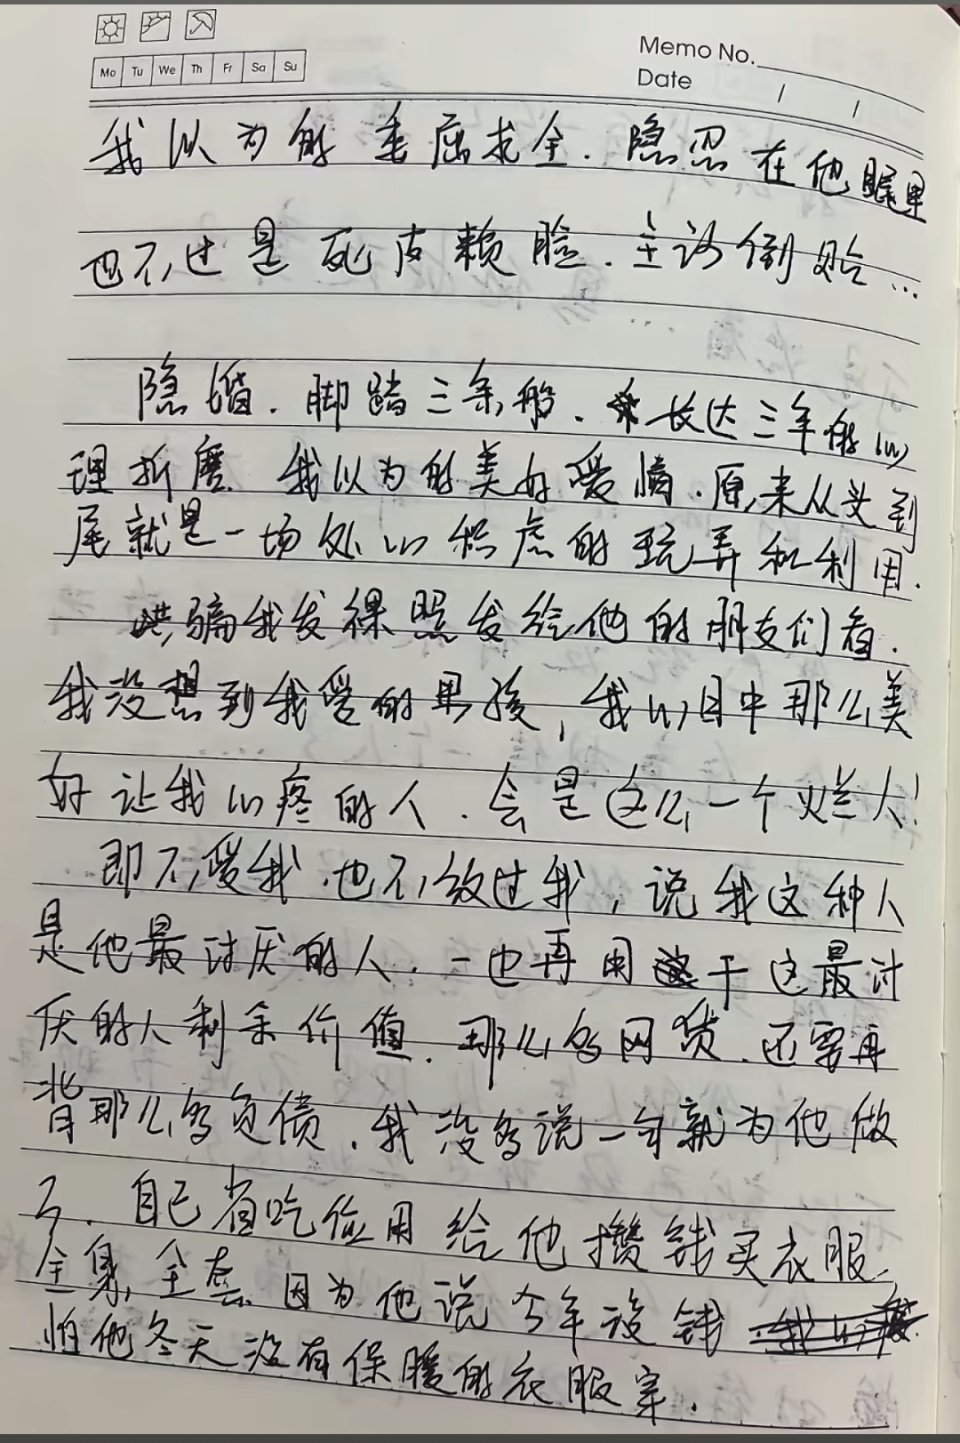 Memo No.
Mo Tu We Th Fr Sa Su
Date / /
我以为的委屈求全.隐忍在他眼里
也不过是死皮赖脸.主动倒贴...
隐婚.脚踏三条船.长达三年的心
理折磨 我以为的美好爱情.原来从头到
尾就是一场处心积虑的玩弄和利用.
哄骗我发裸照发给他的朋友们看.
我没想到我爱的男孩,我心目中那么美
好让我心疼的人.会是这么一个烂人!
即不爱我.也不放过我,说我这种人
是他最讨厌的人.一边再用干这最讨
厌的人剩余价值.那么多网贷.还要再
背那么多负债.我没多说一句就为他做
了.自己省吃俭用给他攒钱买衣服,
全身,全套 因为他说今年没钱
怕他冬天没有保暖的衣服穿.